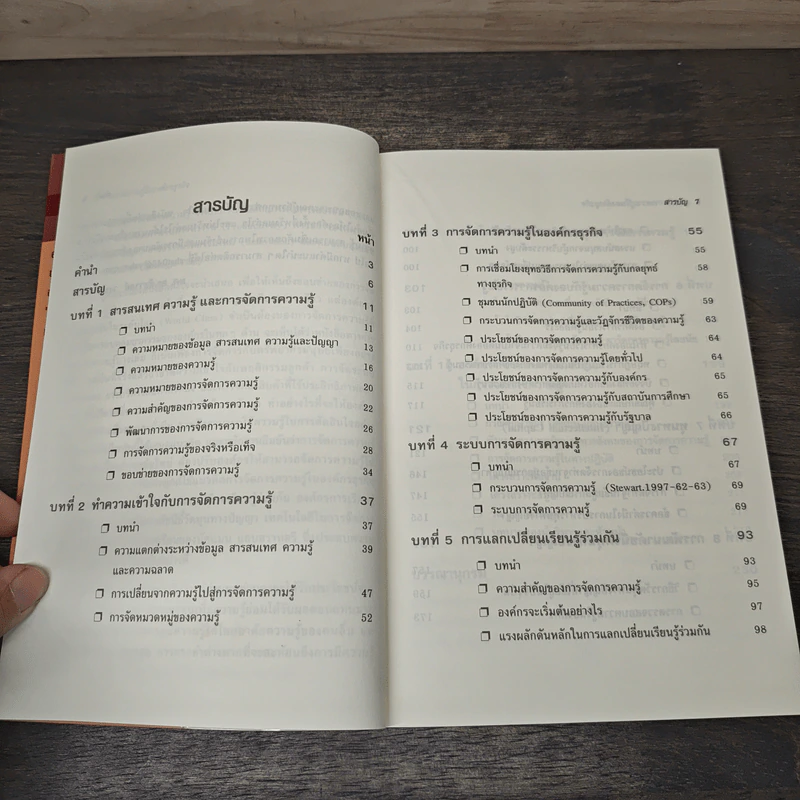 สารบัญ
หน้า
คำนำ 3
สารบัญ 6
บทที่ 1 สารสนเทศ ความรู้ และการจัดการความรู้ 11
❒ บทนำ 11
❒ ความหมายของข้อมูล สารสนเทศ ความรู้และปัญญา 13
❒ ความหมายของความรู้ 16
❒ ความหมายของการจัดการความรู้ 20
❒ ความสำคัญของการจัดการความรู้ 22
❒ พัฒนาการของการจัดการความรู้ 26
❒ การจัดการความรู้ของจริงหรือเท็จ 28
❒ ขอบข่ายของการจัดการความรู้ 34
บทที่ 2 ทำความเข้าใจกับการจัดการความรู้ 37
❒ บทนำ 37
❒ ความแตกต่างระหว่างข้อมูล สารสนเทศ ความรู้ 39
และความฉลาด
❒ การเปลี่ยนจากความรู้ไปสู่การจัดการความรู้ 47
❒ การจัดหมวดหมู่ของความรู้ 52
สารบัญ 7
บทที่ 3 การจัดการความรู้ในองค์กรธุรกิจ 55
❒ บทนำ 55
❒ การเชื่อมโยงยุทธวิธีการจัดการความรู้กับกลยุทธ์ 58
ทางธุรกิจ
❒ ชุมชนนักปฏิบัติ (Community of Practices, COPs) 59
❒ กระบวนการจัดการความรู้และวัฏจักรชีวิตของความรู้ 63
❒ ประโยชน์ของการจัดการความรู้ 64
❒ ประโยชน์ของการจัดการความรู้โดยทั่วไป 64
❒ ประโยชน์ของการจัดการความรู้กับองค์กร 65
❒ ประโยชน์ของการจัดการความรู้กับสถาบันการศึกษา 65
❒ ประโยชน์ของการจัดการความรู้กับรัฐบาล 66
บทที่ 4 ระบบการจัดการความรู้ 67
❒ บทนำ 67
❒ กระบวนการจัดการความรู้ (Stewart.1997-62-63) 69
❒ ระบบการจัดการความรู้ 69
บทที่ 5 การแลกเปลี่ยนเรียนรู้ร่วมกัน 93
❒ บทนำ 93
❒ ความสำคัญของการจัดการความรู้ 95
❒ องค์กรจะเริ่มต้นอย่างไร 97
❒ แรงผลักดันหลักในการแลกเปลี่ยนเรียนรู้ร่วมกัน 98